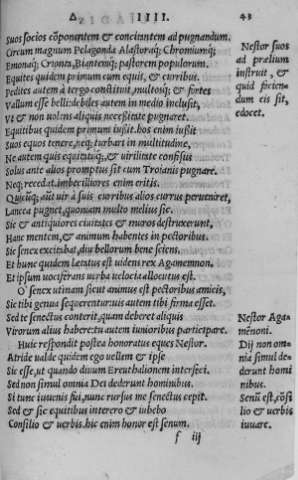 Δ IIII. 43
Suos socios cōponentem & concinntem ad pugnandum.
Circum magnum Pelagonda Alastoraq; Chromiumq;
Emonaq; Crionta, Biantemq; pastorem populorum.
Equites quidem primum cum equis, & curribus.
Pedites autem à tergo constituit, multosq; & fortes
Vallum esse belli: debiles autem in medio inclusit,
Vt & non uolens aliquis necessitate pugnaret.
Equitibus quidem primum iussit. hos enim iussit
Suos equos tenere, neq; turbari in multitudine,
Ne autem quis equitatuq;, & uirilitate confisus
Solus ante alios promptus sit cum Troianis pugnare.
Neq; recedat. imbeciliores enim eritis.
Quicūq; aūt uir à suis curribus alios currus peruenerit,
Lancea pugnet, quoniam multo melius sic.
Sic & antiquiores ciuitates & muros destruxerunt,
Hanc mentem, & animum habentes in pectoribus.
Sic senex excitabat, diu bellorum bene sciens.
Et hunc quidem Lætatus est uidens rex Agamemnon.
Et ipsum uociferans uerba uelocia allocutus est.
O senex utinam sicut animus est pectoribus amicis,
Sic tibi genua sequerentur: uis autem tibi firma esset.
Sed te senectus conterit, quam deberet aliquis
Virorum alius habere: tu autem iunioribus participare.
Huic respondit postea honoratus eques Nestor.
Atride ualde quidem ego uellem & ipse
Sic esse, ut quando diuum Ereuthalionem interfeci.
Sed non simul omnia Dei dederunt hominibus.
Si tunc iuuenis fui, nunc rursus me senectus cepit.
Sed & sic equitibus interero & iubebo
Consilio & uerbis. hic enim honor est senum.
f iij
Nestor suos
ad prælium
instruit, &
quid facien-
dum eis sit,
edocet.
Nestor Aga
mēnoni.
Dij non om
nia simul de-
derunt homi
nibus.
Senū est, cōsi
lio & uerbis
iuuare.